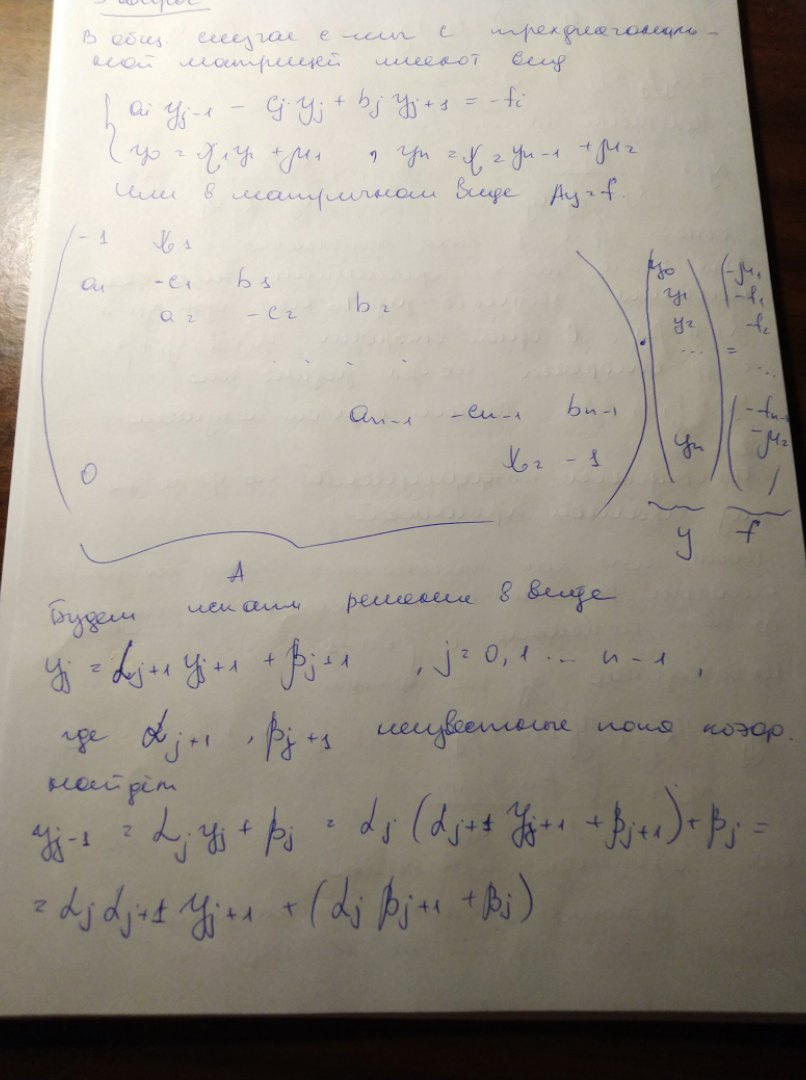 В общ. случае с-мы с трехдиагональ-
ной матрицей имеют вид
aj yj-1 - cj yj + bj yj+1 = -fi
y0 = ϰ1y1 + μ1 , yn = ϰ2yn-1 + μ2
или в матричном виде Ay=f.
-1 ϰ1
a1 -c1 b1
a2 -c2 b2
an-1 -cn-1 bn-1
0 ϰ2 -1
y0
y1
y2
...
yn
=
-μ1
-f1
-f2
...
-fn-1
-μ2
A
y f
Будем искать решение в виде
yj = αj+1 yj+1 + βj+1 , j = 0, 1 ... n-1 ,
где αj+1 , βj+1 неизвестные пока коэф.
найдём
yj-1 = αj yj + βj = αj (αj+1 yj+1 + βj+1) + βj =
= αj αj+1 yj+1 + (αj βj+1 + βj)